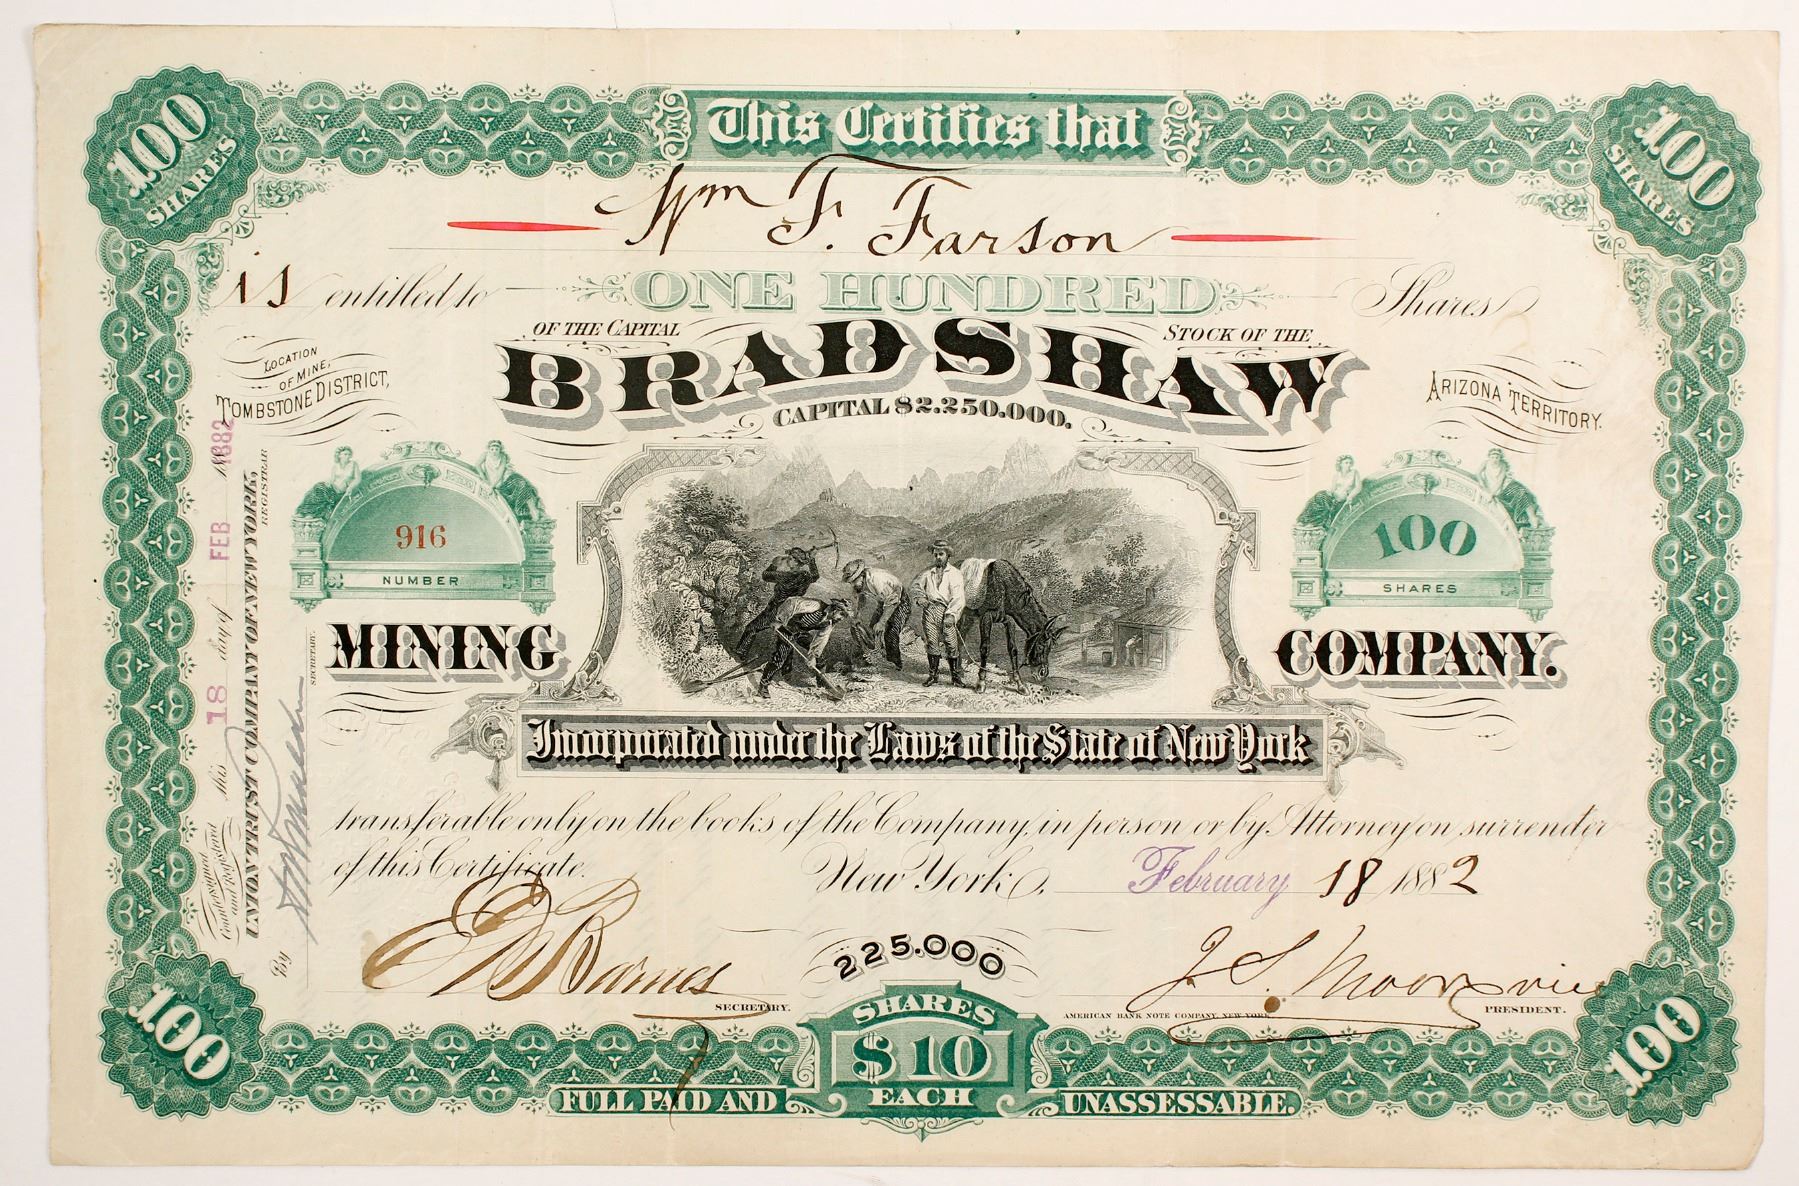 This Certifies that
100 SHARES
100 SHARES
Wm F. Farson
is entitled to ONE HUNDRED Shares
OF THE CAPITAL STOCK OF THE
BRADSHAW
CAPITAL $2.250.000.
LOCATION
OF MINE,
TOMBSTONE DISTRICT,
ARIZONA TERRITORY.
916
NUMBER
100
SHARES
MINING COMPANY.
Incorporated under the Laws of the State of New York
transferable only on the books of the Company, in person or by Attorney on surrender
of this Certificate. New York, February 18 1882
Barnes
SECRETARY.
225.000
SHARES
$10
EACH
J. S.
PRESIDENT.
AMERICAN BANK NOTE COMPANY, NEW YORK
100
100
FULL PAID AND UNASSESSABLE.
Countersigned
and Registered
this 18 day of FEB 1882
UNION TRUST COMPANY OF NEW YORK,
REGISTRAR
By
SECRETARY.